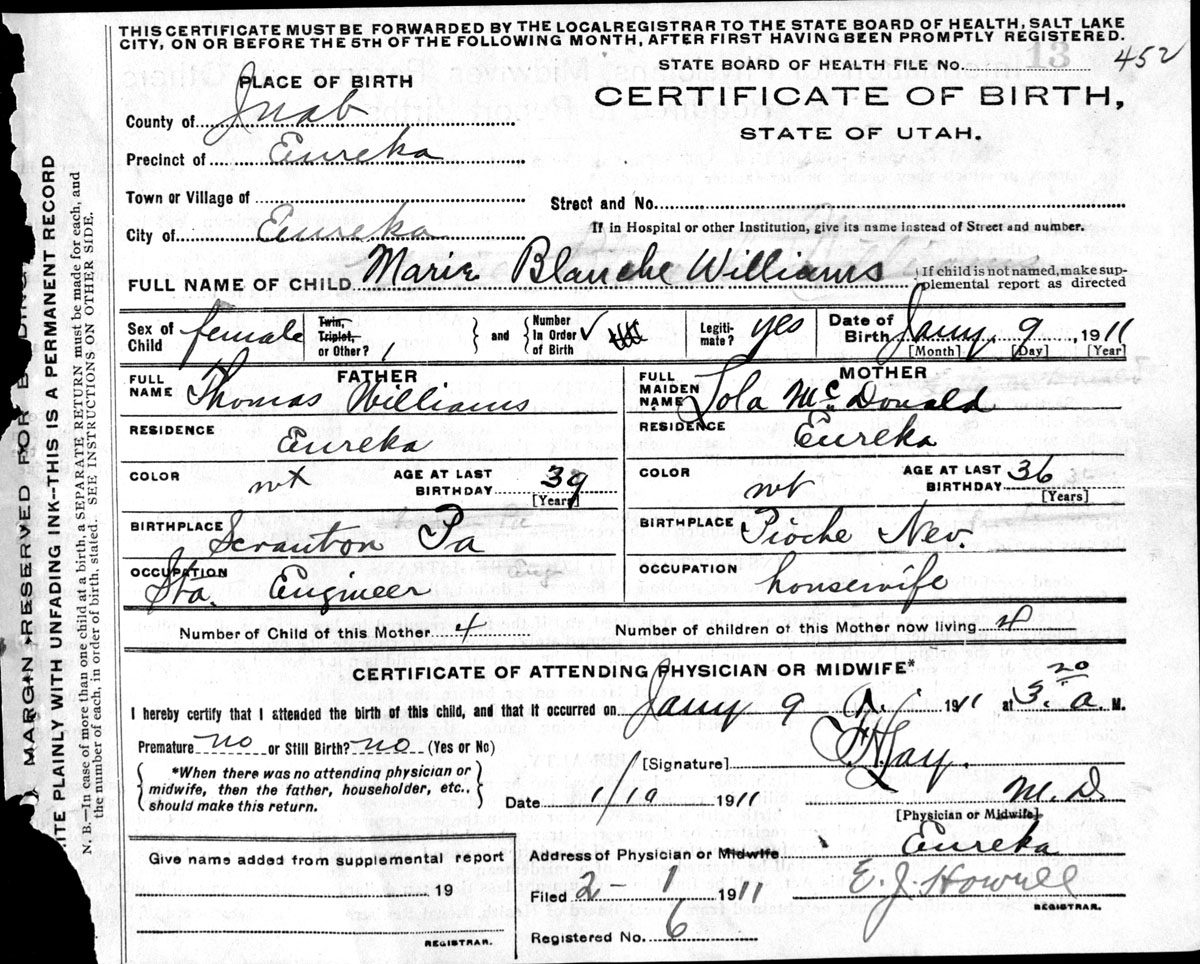 THIS CERTIFICATE MUST BE FORWARDED BY THE LOCAL REGISTRAR TO THE STATE BOARD OF HEALTH, SALT LAKE
CITY, ON OR BEFORE THE 5TH OF THE FOLLOWING MONTH, AFTER FIRST HAVING BEEN PROMPTLY REGISTERED.
STATE BOARD OF HEALTH FILE NO. 13 452
PLACE OF BIRTH
CERTIFICATE OF BIRTH,
STATE OF UTAH.
County of Juab
Precinct of Eureka
Town or Village of
Street and No.
City of Eureka
If in Hospital or other Institution, give its name instead of Street and number.
FULL NAME OF CHILD Marie Blanche Williams
If child is not named, make sup-
plemental report as directed
Sex of Child female
Twin, Triplet, or Other? 1
and Number In Order of Birth
Legiti-mate? yes
Date of Birth Jany 9, 1911
[Month] [Day] [Year]
FATHER
FULL NAME Thomas Williams
RESIDENCE Eureka
COLOR wt AGE AT LAST BIRTHDAY 39 [Years]
BIRTHPLACE Scranton Pa
OCCUPATION Sta. Engineer
MOTHER
FULL MAIDEN NAME Lola McDonald
RESIDENCE Eureka
COLOR wt AGE AT LAST BIRTHDAY 36 [Years]
BIRTHPLACE Pioche Nev.
OCCUPATION housewife
Number of Child of this Mother 4 Number of children of this Mother now living 4
CERTIFICATE OF ATTENDING PHYSICIAN OR MIDWIFE*
I hereby certify that I attended the birth of this child, and that it occurred on Jany 9 1911 at 3.20 a. M.
Premature no or Still Birth? no (Yes or No)
*When there was no attending physician or
midwife, then the father, householder, etc.,
should make this return.
[Signature]
M.D.
Date 1/10 1911
[Physician or Midwife]
Give name added from supplemental report
19
REGISTRAR.
Address of Physician or Midwife Eureka
Filed 2-1 1911 E. J. Howell
REGISTRAR.
Registered No. 6
MARGIN RESERVED FOR
PLAINLY WITH UNFADING INK--THIS IS A PERMANENT RECORD
N. B.--In case of more than one child at a birth, a SEPARATE RETURN must be made for each, and
the number of each, in order of birth, stated. SEE INSTRUCTIONS ON OTHER SIDE.